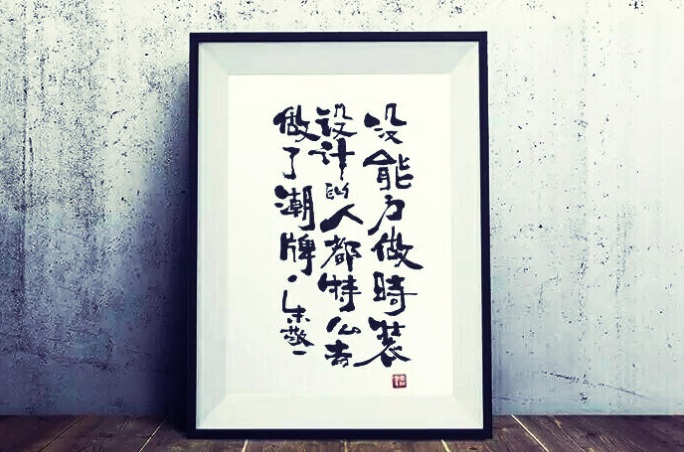 没能力做時装
設計的人都特么去
做了潮牌。朱敬一